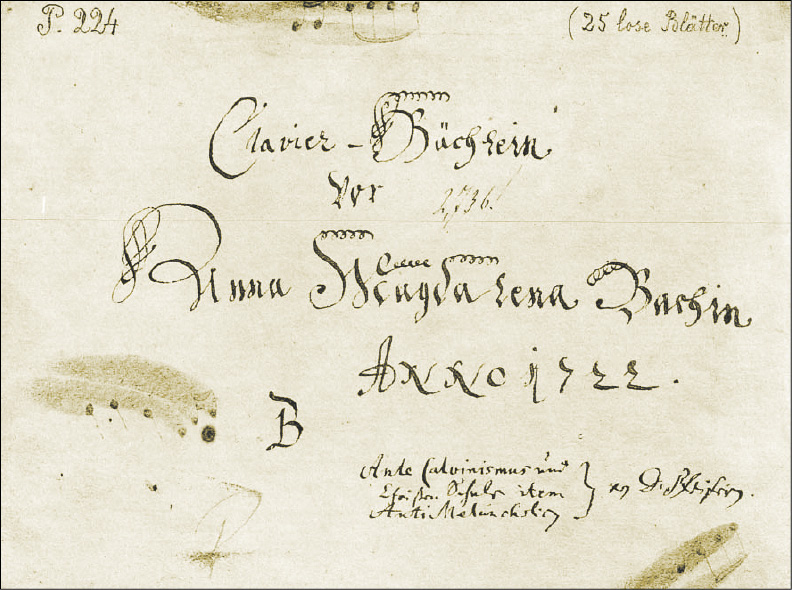 P. 224
(25 lose Blätter)
Clavier-Büchlein
vor
Anna Magdalena Bachin
ANNO 1722.
B
Ante Calvinismus und
Schule item
Anti Melancholicy
D. Pfeifern.